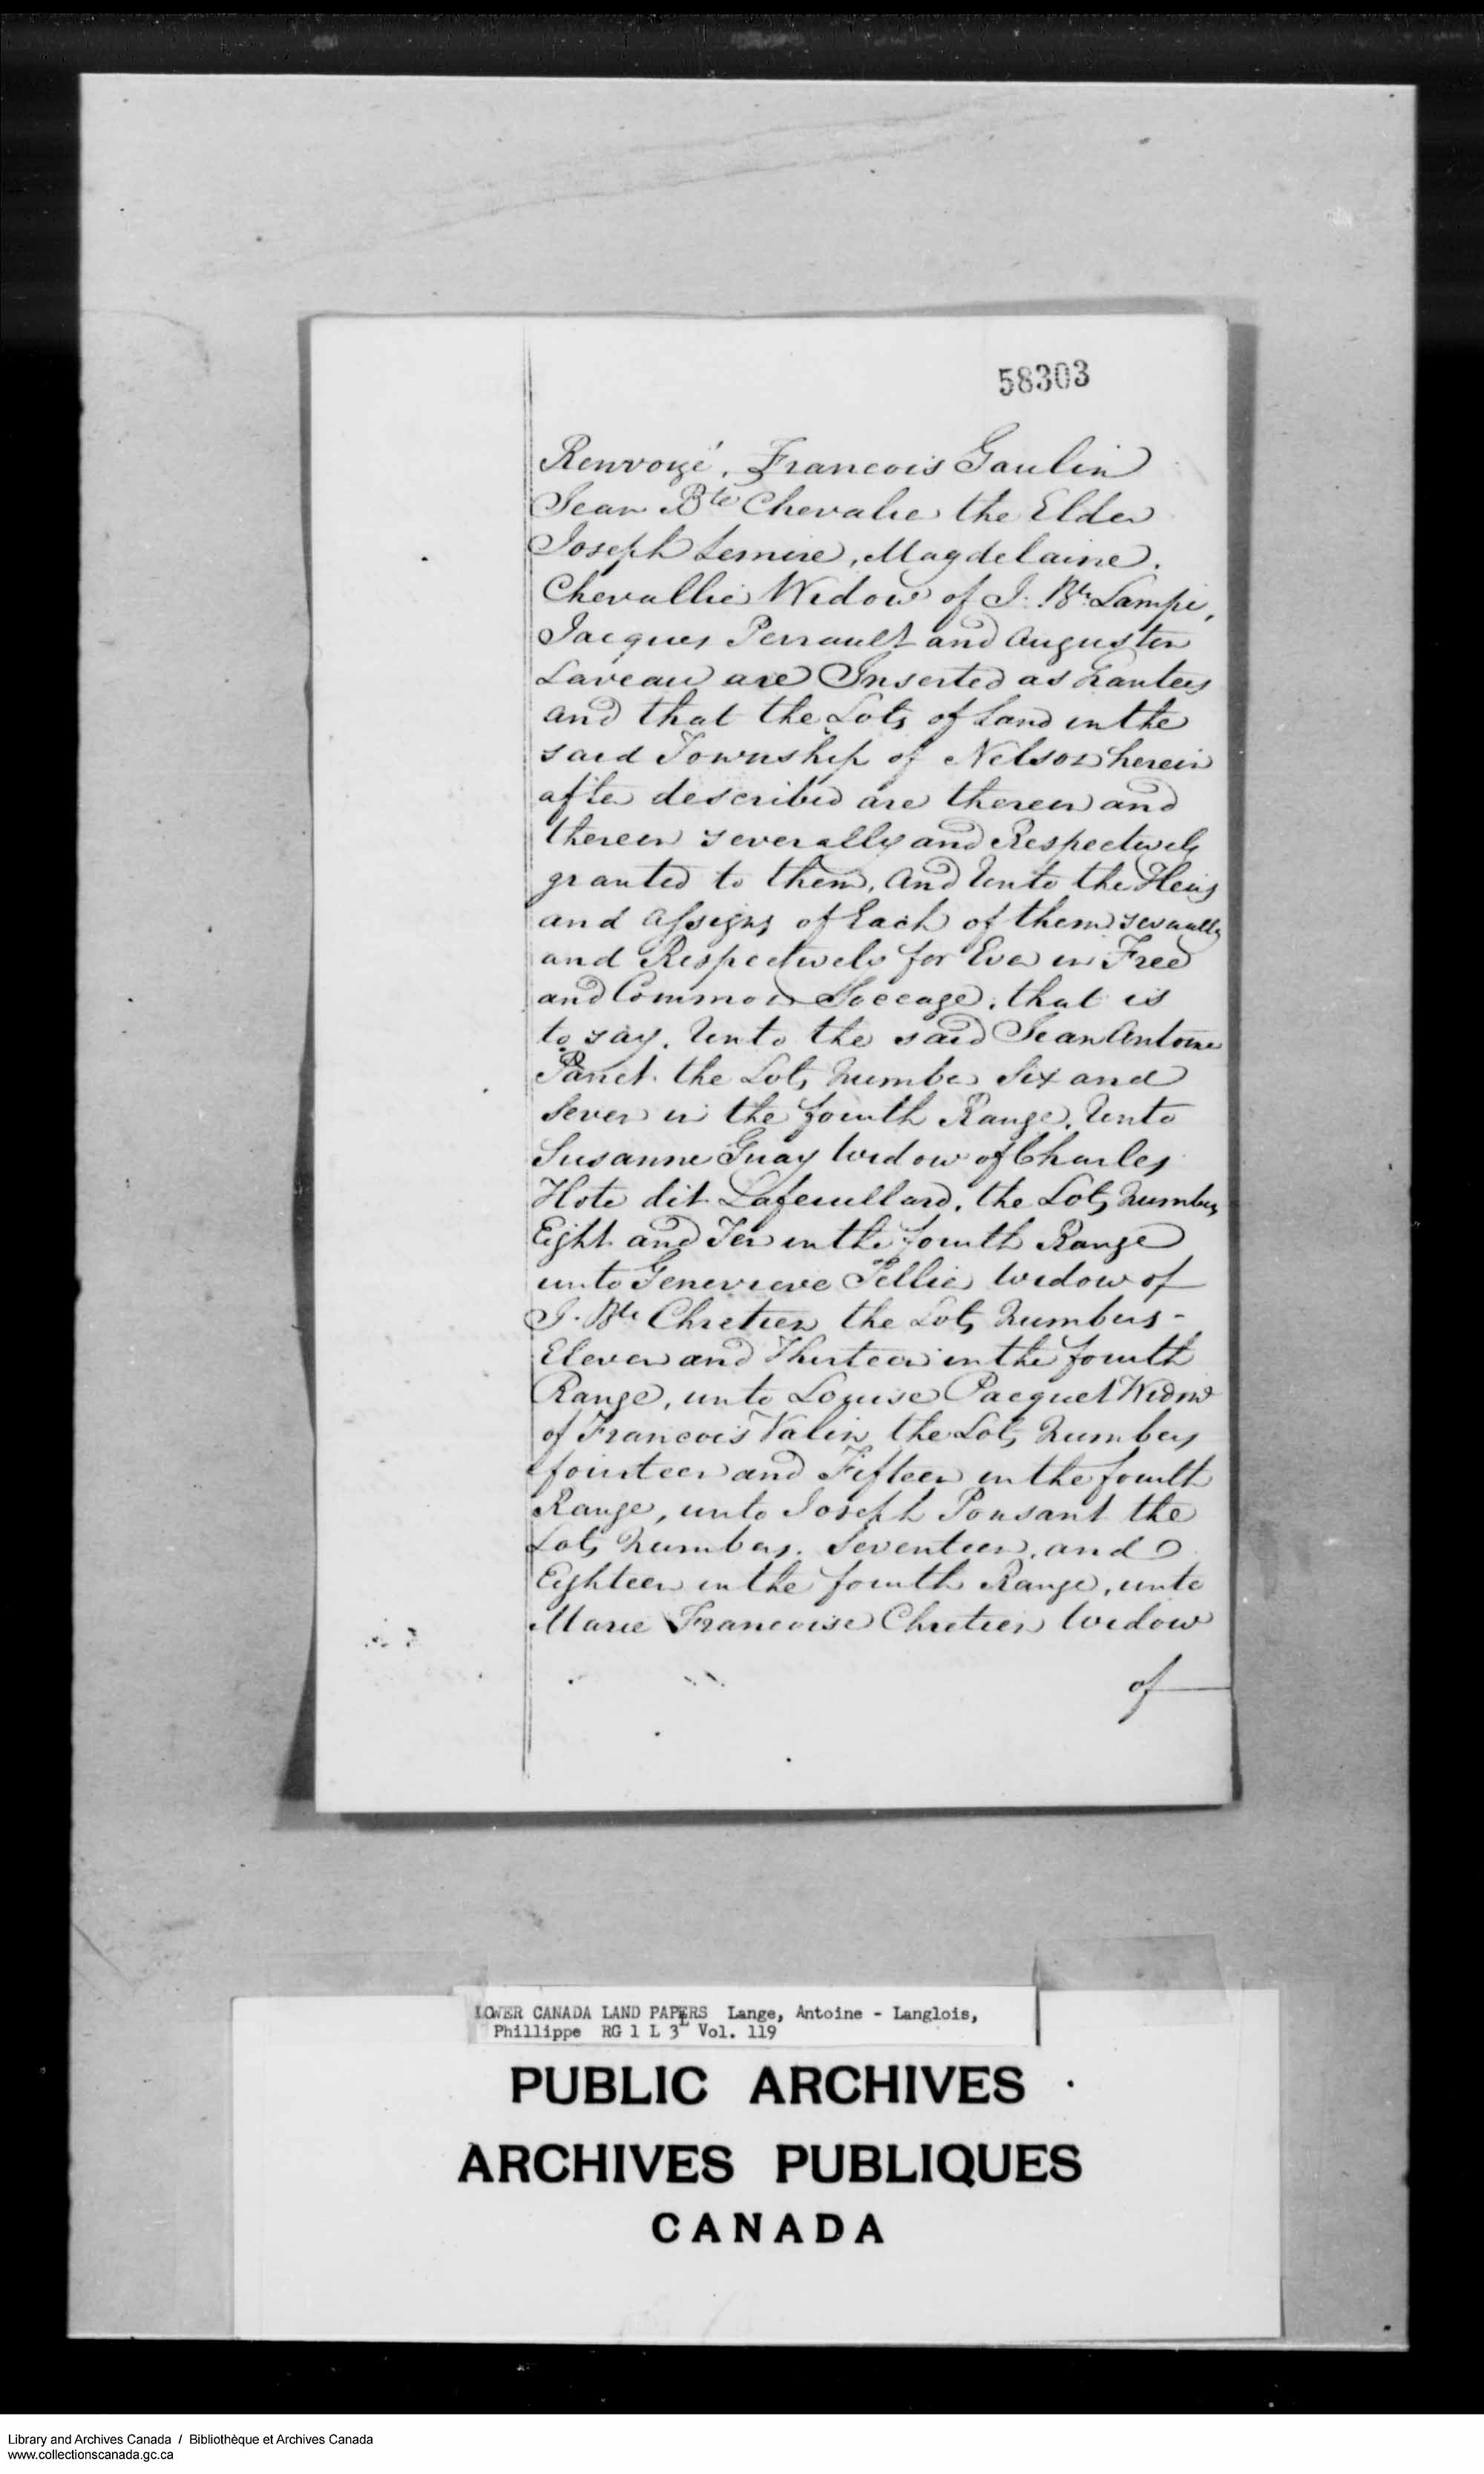 58303
Renvoyé, Francois Gaulin
Jean Bte Chevalier the Elder
Joseph Lemire, Magdelaine
Chevallier Widow of J. Bte Lampi,
Jacques Perrault and Augustin
Laveau are Inserted as Grantees
and that the Lots of Land in the
said Township of Nelson herein
after described are therein and
therein severally and Respectively
granted to them, And Unto the Heirs
and Assigns of Each of them severally
and Respectively for Ever in Free
and Common Soccage, that is
to say, Unto the said Jean Antoine
Panet the Lots Number Six and
Seven in the fourth Range, Unto
Susanne Guay Widow of Charles
Hote dit Lafeuillard, the Lots Numbers
Eight and Ten in the fourth Range
unto Genevieve Pellier Widow of
J. Bte Chretien the Lots Numbers -
Eleven and Thirteen in the fourth
Range, unto Louise Pacquet Widow
of Francois Valin the Lots Numbers
fourteen and Fifteen in the fourth
Range, unto Joseph Ponsant the
Lots Numbers Seventeen, and
Eighteen in the fourth Range, unto
Marie Francoise Chretien Widow
of
LOWER CANADA LAND PAPERS Lange, Antoine - Langlois,
Phillippe RG 1 L 3L Vol. 119
PUBLIC ARCHIVES
ARCHIVES PUBLIQUES
CANADA
Library and Archives Canada / Bibliothèque et Archives Canada
www.collectionscanada.gc.ca